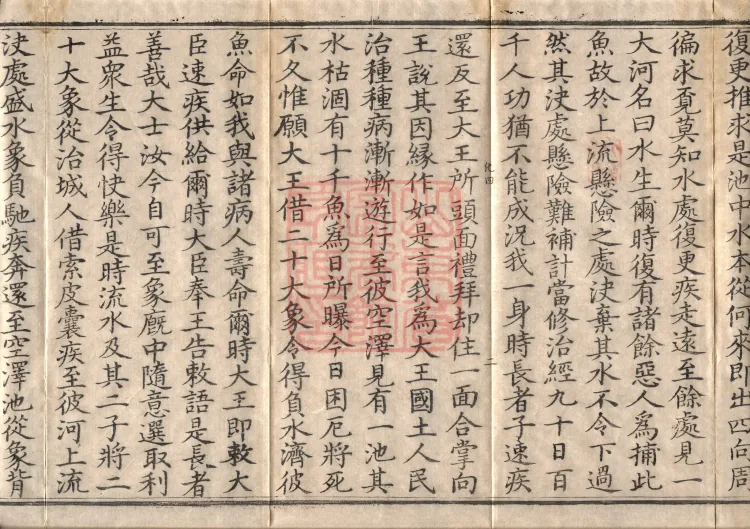 復更推求是池中水本從何來即出四向周
徧求覓莫知水處復更疾走遠至餘處見一
大河名曰水生爾時復有諸餘惡人為捕此
魚故於上流懸險之處決棄其水不令下過
然其決處懸險難補計當修治經九十日百
千人功猶不能成況我一身時長者子速疾
還反至大王所頭面禮拜却住一面合掌向
王說其因緣作如是言我為大王國土人民
治種種病漸漸遊行至彼空澤見有一池其
水枯涸有十千魚為日所曝今日困厄將死
不久惟願大王借二十大象令得負水濟彼
魚命如我與諸病人壽命爾時大王即敕大
臣速疾供給爾時大臣奉王告敕語是長者
善哉大士汝今自可至象廐中隨意選取利
益眾生令得快樂是時流水及其二子將二
十大象從治城人借索皮囊疾至彼河上流
決處盛水象負馳疾奔還至空澤池從象背
二